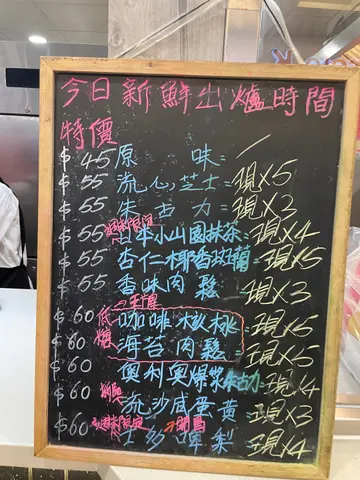 今日新鮮出爐時間
特價
$45 原味 /
$55 流心芝士=現x5
$55 朱古力=現x3
$55 日本小山園抹茶=現x4
$55 杏仁椰香斑蘭=現x5
$55 香味肉鬆=現x3
$60 低糖 咖啡核桃=現x5
$60 海苔肉鬆=現x5
$60 奧利奧爆漿朱古力=現x4
$60 流沙咸蛋黃=現x3
$60 士多啤梨=現x4